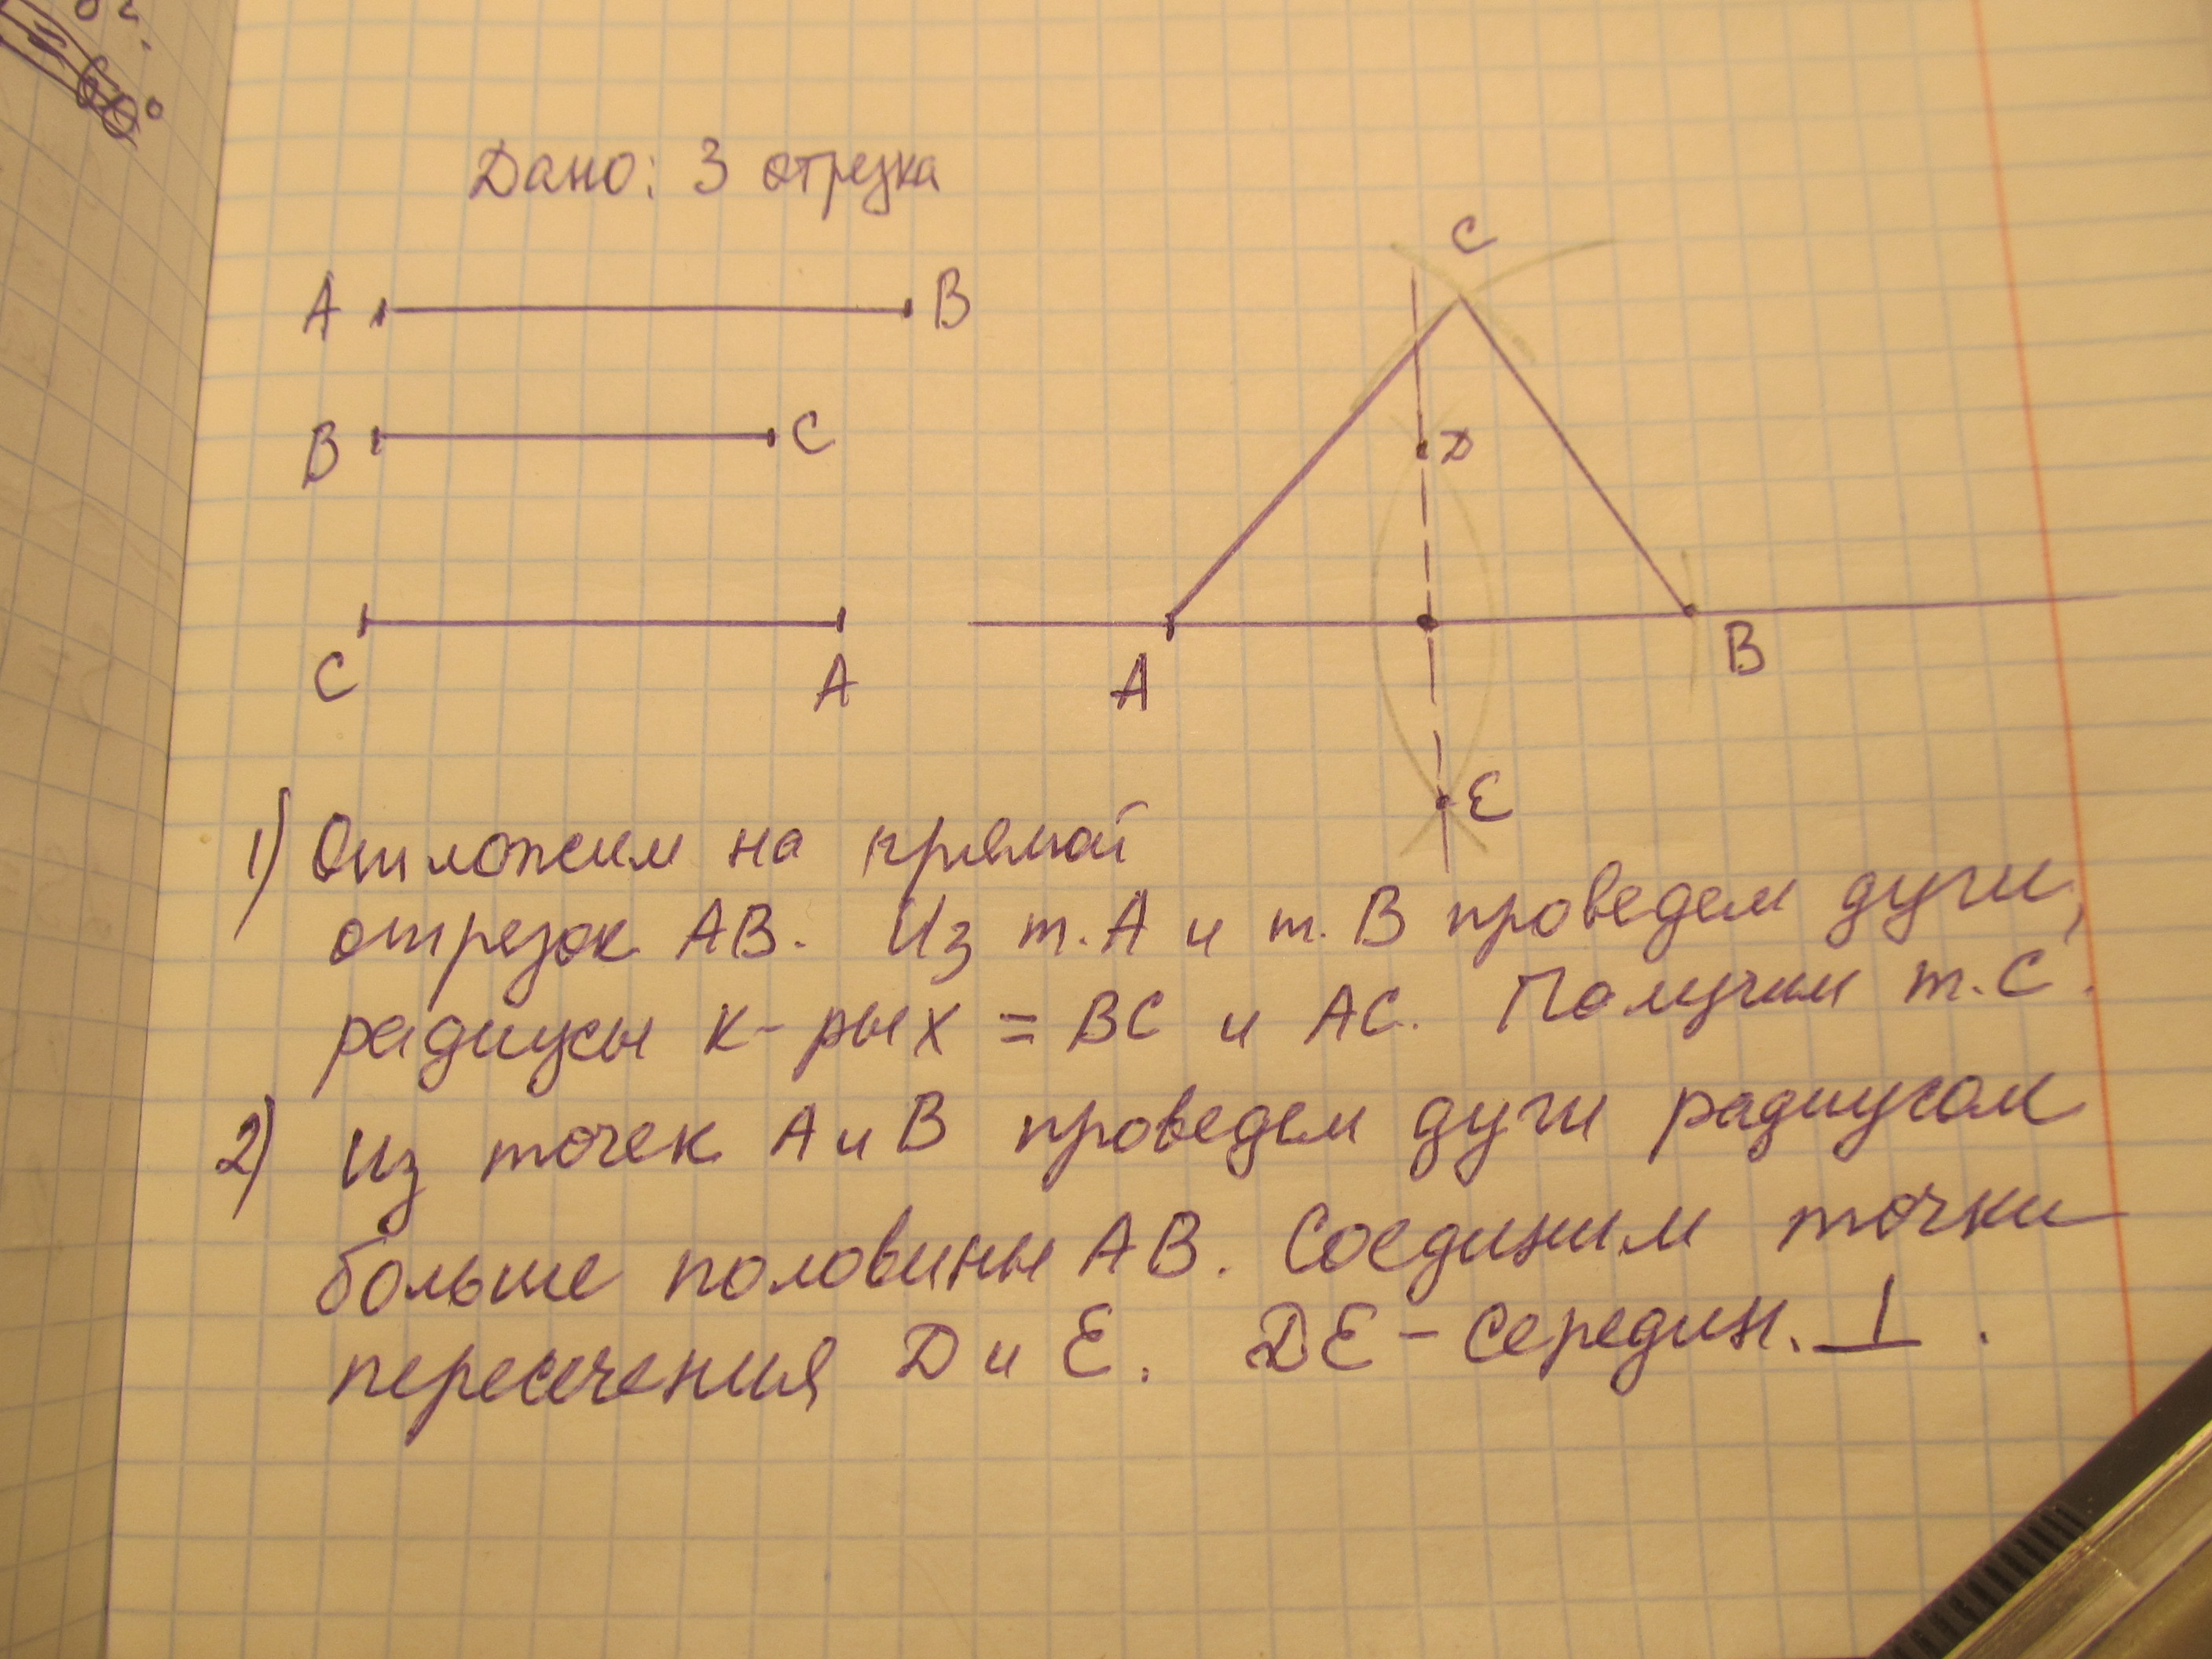 60°
Дано: 3 отрезка
A B
B C
C A
C
D
A B
E
1) Отложим на прямой
отрезок AB. Из т. A и т. B проведем дуги,
радиусы к-рых = BC и AC. Получим т. C.
2) Из точек A и B проведем дуги радиусом
больше половины AB. Соединим точки
пересечения D и E. DE - середин. ⊥.